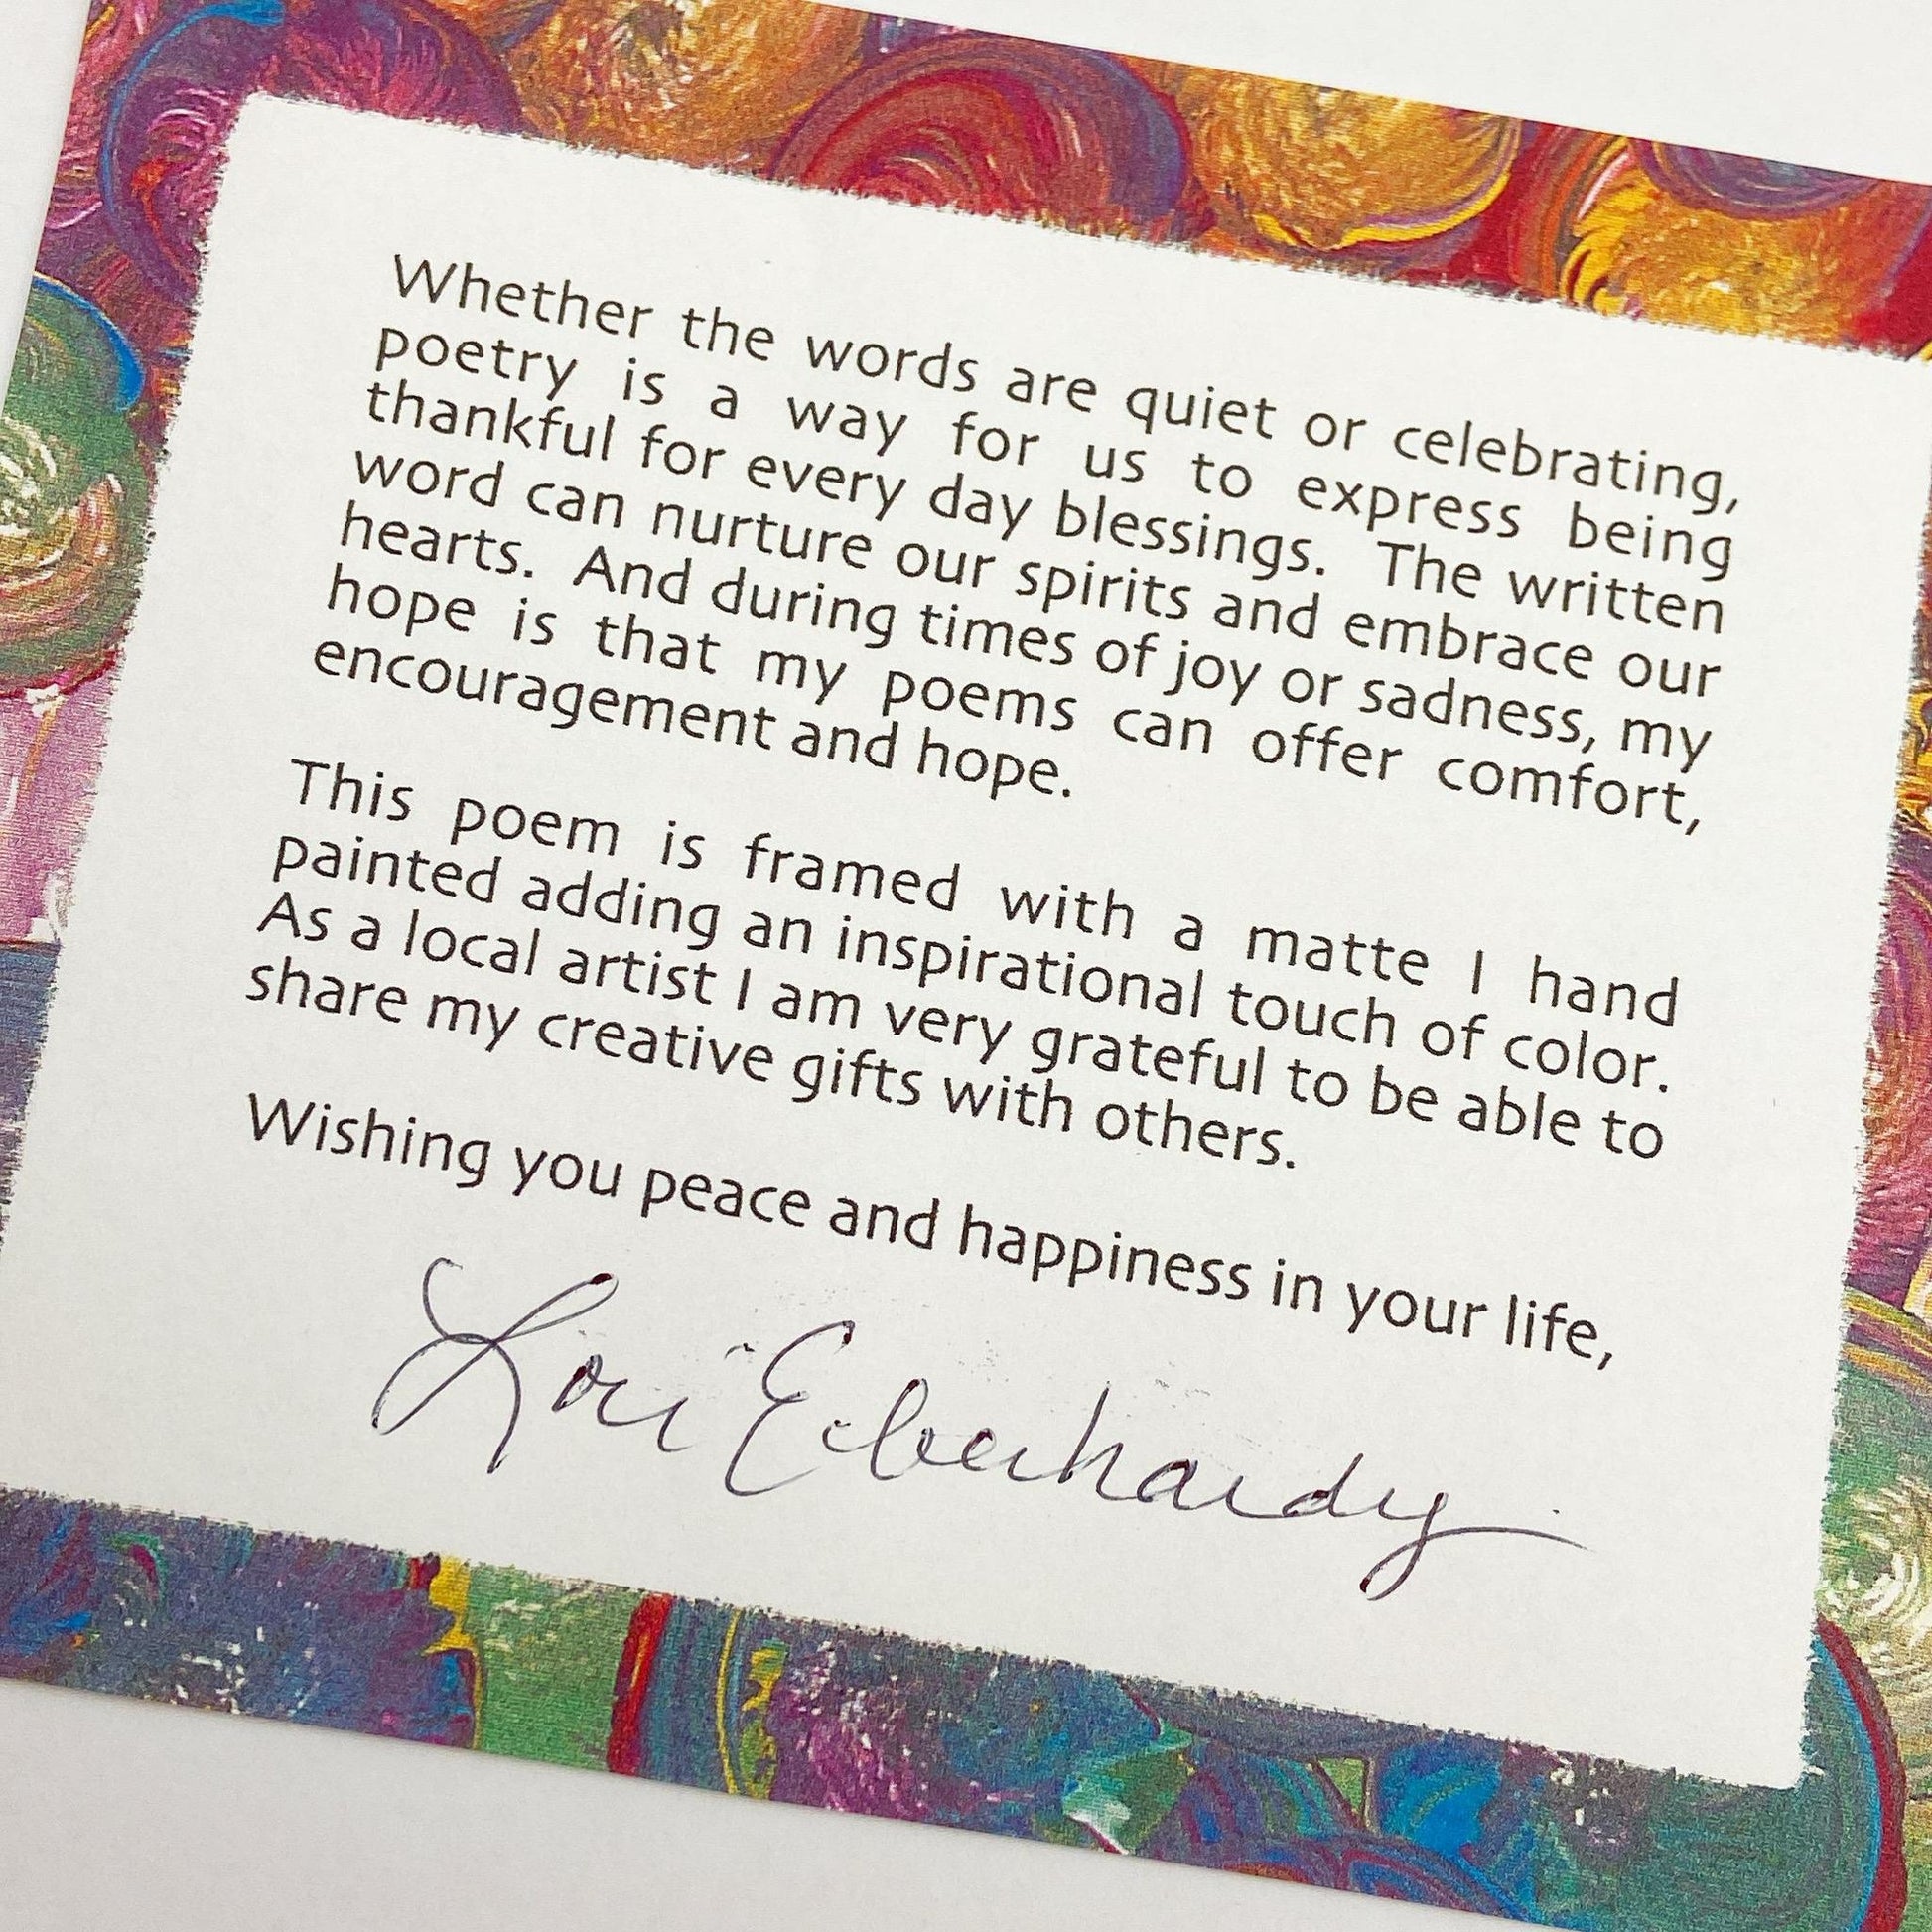 Whether the words are quiet or celebrating,
poetry is a way for us to express being
thankful for every day blessings. The written
word can nurture our spirits and embrace our
hearts. And during times of joy or sadness, my
hope is that my poems can offer comfort,
encouragement and hope.
This poem is framed with a matte I hand
painted adding an inspirational touch of color.
As a local artist I am very grateful to be able to
share my creative gifts with others.
Wishing you peace and happiness in your life,
Lori Eberhardy